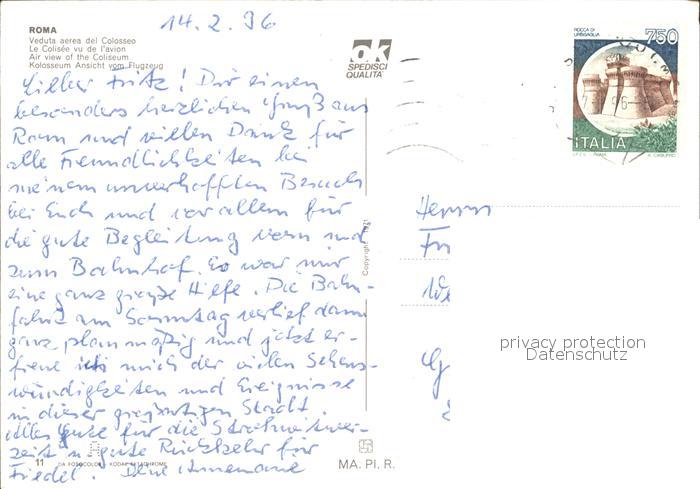 14.2.96
ROMA
Veduta aerea del Colosseo
Le Colisée vu de l'avion
Air view of the Coliseum
Kolosseum Ansicht vom Flugzeug
ok
SPEDISCI
QUALITA'
ROCCA DI
URBISAGLIA
750
ITALIA
Lieber Fritz! Dir einen
besonders herzlichen Gruß aus
Rom und vielen Dank für
alle Freundlichkeiten bei
meinem unverhofften Besuch
bei Euch und vor allem für
die gute Begleitung vom und
zum Bahnhof. Es war mir
eine ganz große Hilfe. Die Bahn-
fahrt am Sonntag verlief dann
ganz planmäßig und jetzt er-
freue ich mich der vielen Sehens-
würdigkeiten und Ereignisse
in dieser großartigen Stadt.
Alles Gute für die
zeit u. gute Rückkehr für
Friedel. Deine Annemarie
Herrn
Fri
We
G
Copyright
privacy protection
Datenschutz
11
DA FOTOCOLOR KODAK EKTACHROME
MA. PI. R.